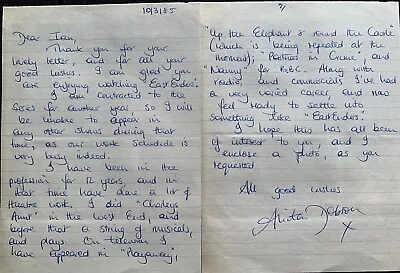 10/3/85
Dear Ian,
Thank you for your
lovely letter, and for all your
good wishes. I am glad you
are enjoying watching EastEnders.
I am contracted to the
series for another year so I will
be unable to appear in
any other shows during that
time, as our work schedule is
very busy indeed.
I have been in the
profession for 12 years, and in
that time have done a lot of
theatre work. I did "Charleys
Aunt" in the West End, and
before that a string of musicals,
and plays. On television I
have appeared in "Playaway",
2/
"Up the Elephant & round the Castle"
(which is being repeated at the
moment); "Partners in Crime", and
"Nanny" for BBC. Along with
radio, and commercials I've had
a very varied career, and now
feel ready to settle into
something like "EastEnders".
I hope this has all been
of interest to you, and I
enclose a photo, as you
requested.
All good wishes
Anita Dobson
x